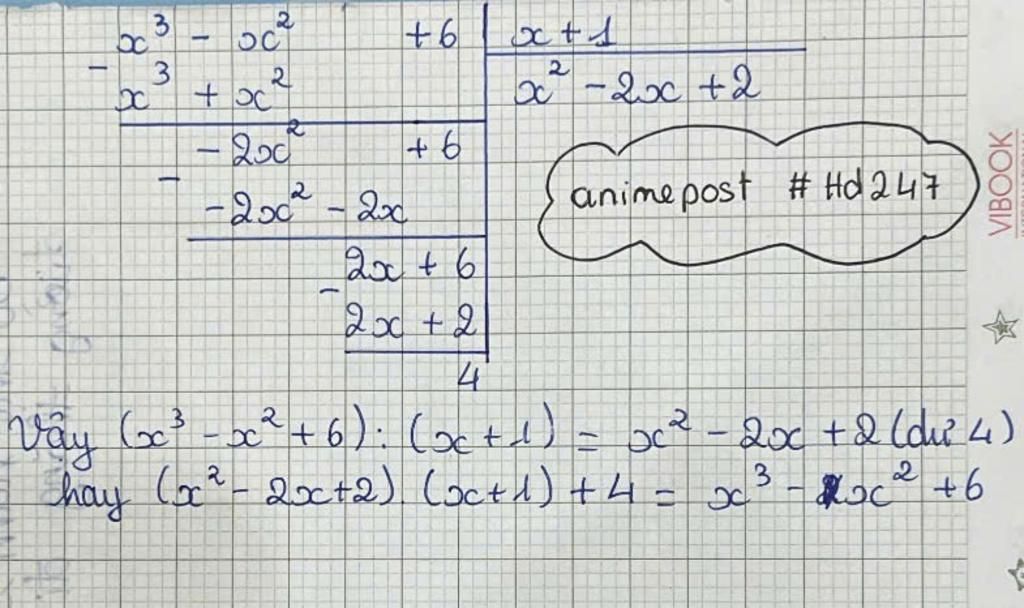 x³ - x² +6 | x+1
- x³ + x² | x² -2x +2
-2x² +6
- -2x² -2x
2x + 6
- 2x + 2
4
animepost #Hd247
VIBOOK
Vậy (x³ -x² +6): (x+1) = x² -2x +2 (dư 4)
hay (x² - 2x+2). (x+1) +4 = x³ - x² +6